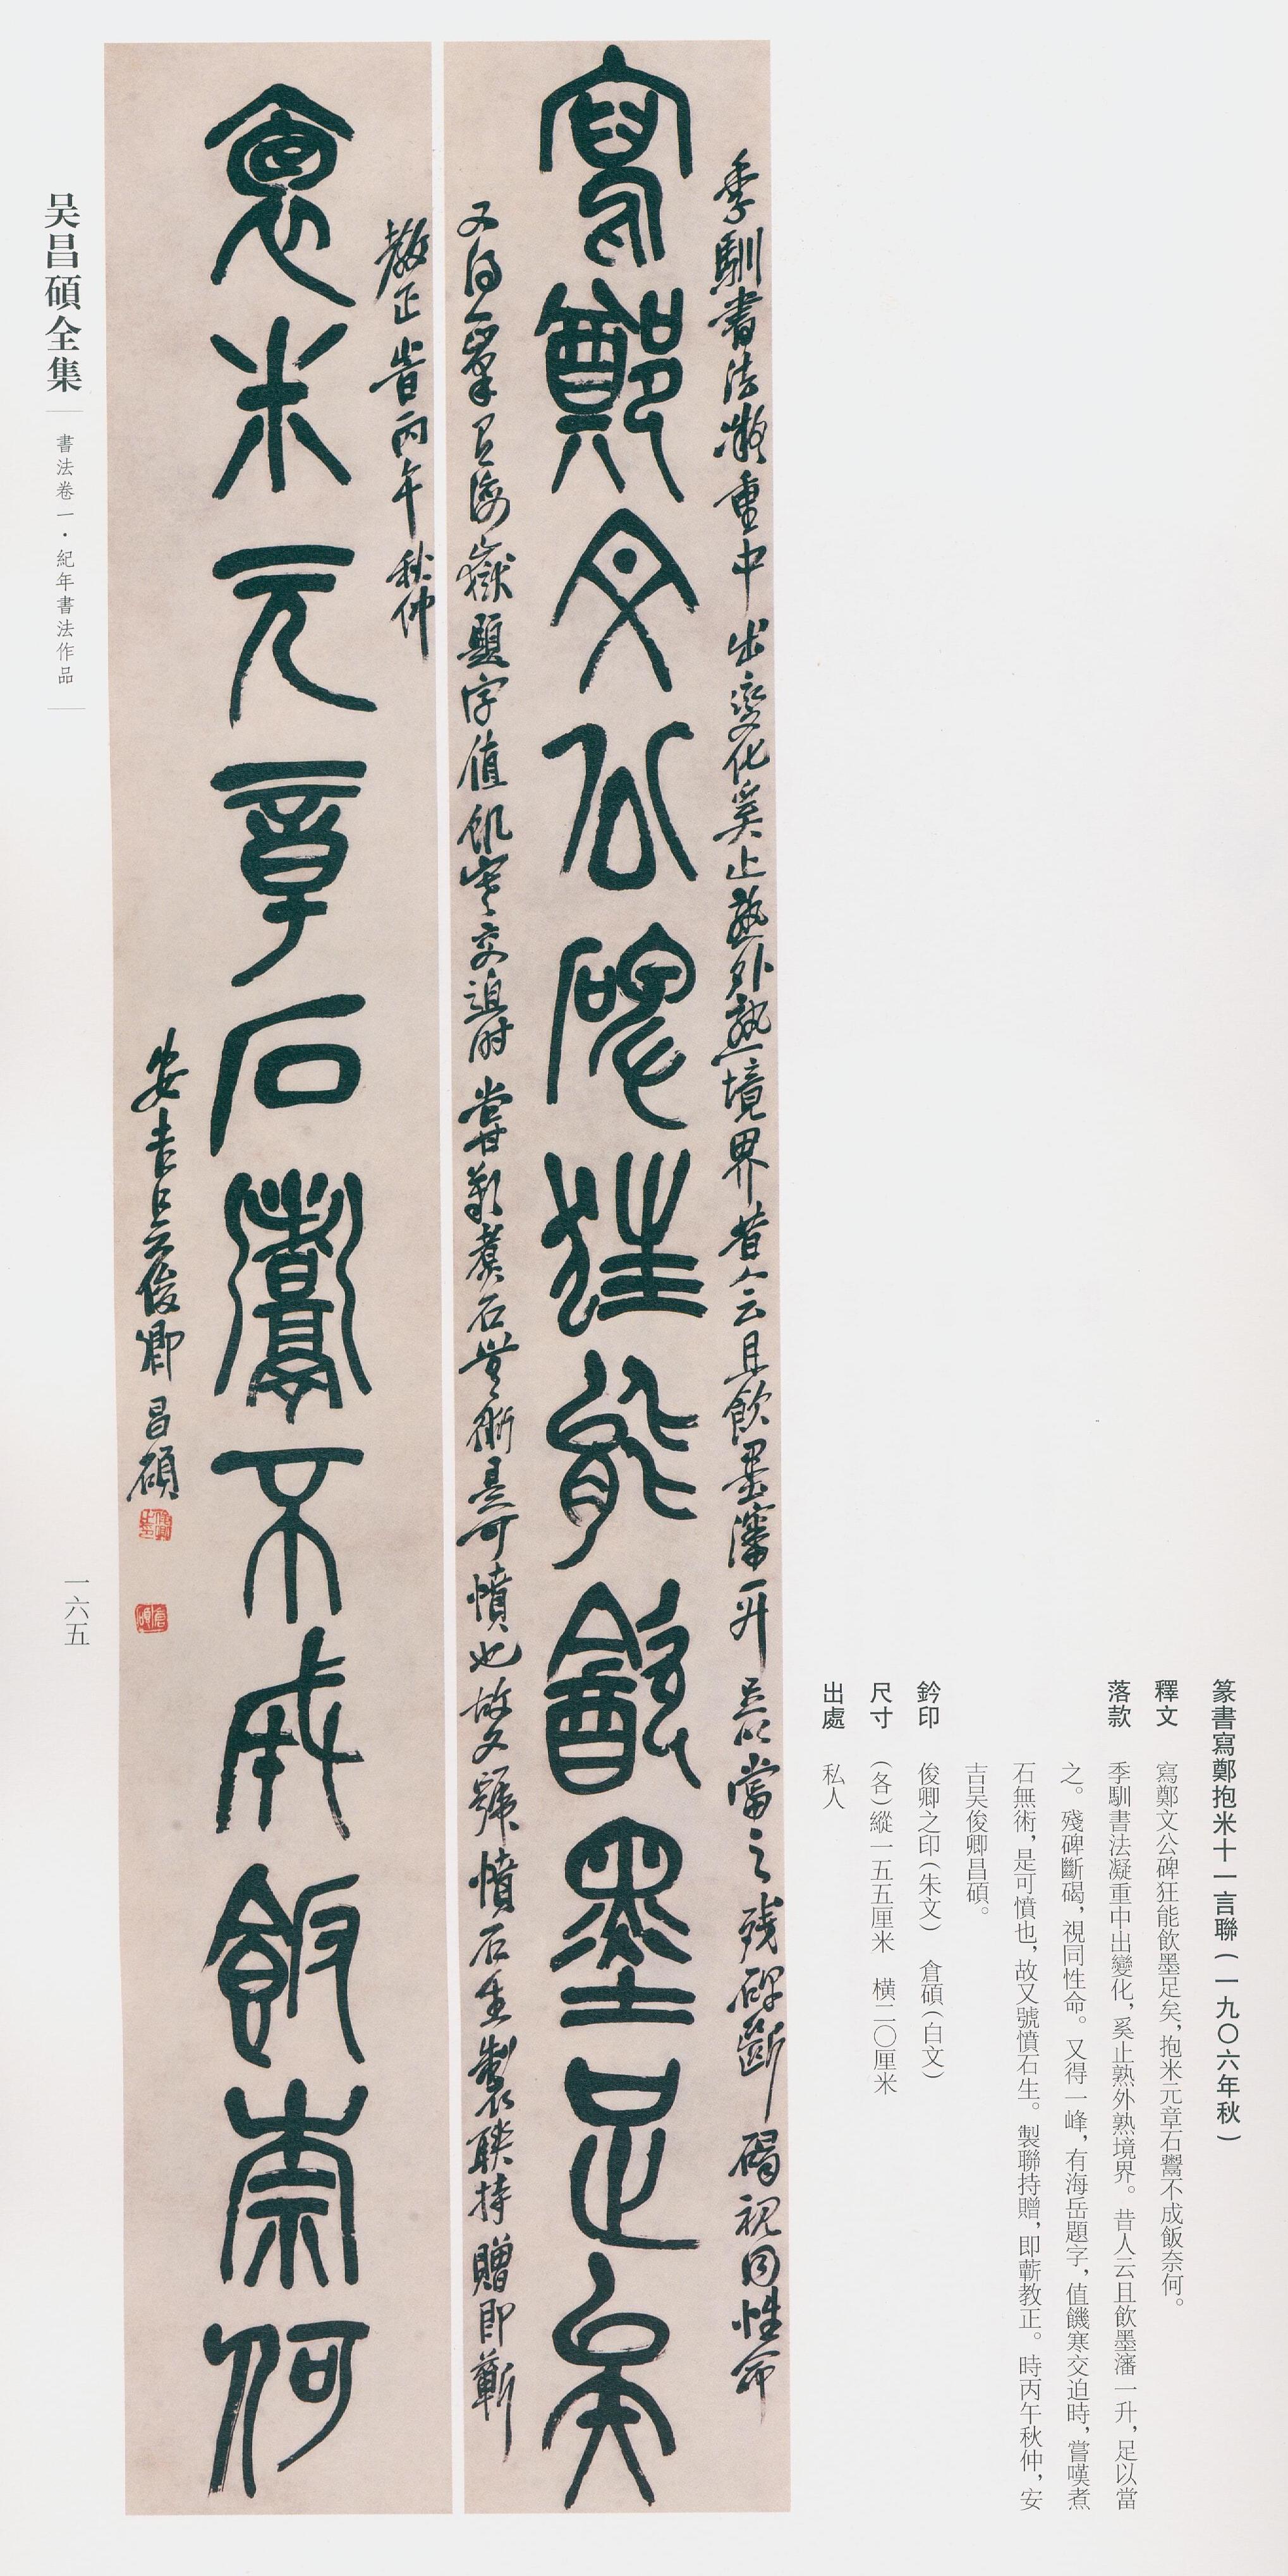 篆書寫鄭抱米十一言聯(一九〇六年秋)
釋文 寫鄭文公碑狂能飲墨足矣,抱米元章石鬻不成飯奈何。
落款 季馴書法凝重中出變化,奚止熟外熟境界。昔人云且飲墨瀋一升,足以當
之。殘碑斷碣,視同性命。又得一峰,有海岳題字,值饑寒交迫時,嘗嘆煮
石無術,是可憤也,故又號憤石生。製聯持贈,即蘄教正。時丙午秋仲,安
吉吴俊卿昌碩。
鈐印 俊卿之印(朱文) 倉碩(白文)
尺寸 (各)縱一五五厘米 橫二〇厘米
出處 私人
季馴書法凝重中出變化奚止熟外熟境界昔人云且飲墨瀋一升足以當之殘碑斷碣視同性命
寫鄭文公碑狂能飲墨足矣
又得一峯有海嶽題字值飢寒交迫時嘗歎煮石無術是可憤也故又號憤石生製聯持贈即蘄
教正時丙午秋仲
抱米元章石鬻不成飯奈何
安吉吴俊卿昌碩
俊卿之印
倉碩
吴昌碩全集
書法卷一·紀年書法作品
一六五